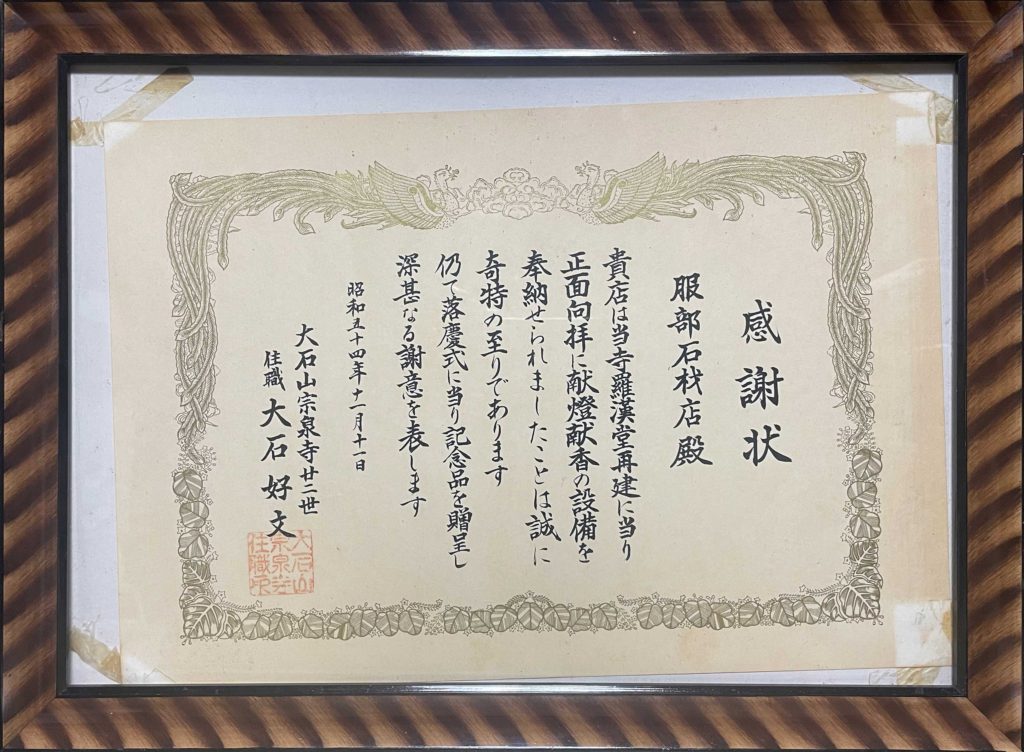 感謝状
服部石材店殿
貴店は当寺羅漢堂再建に当り
正面向拝に献燈献香の設備を
奉納せられましたことは誠に
奇特の至りであります
仍て落慶式に当り記念品を贈呈し
深甚なる謝意を表します
昭和五十四年十一月十一日
大石山宗泉寺廿二世
住職 大石好文
大石山
宗泉寺
住職印